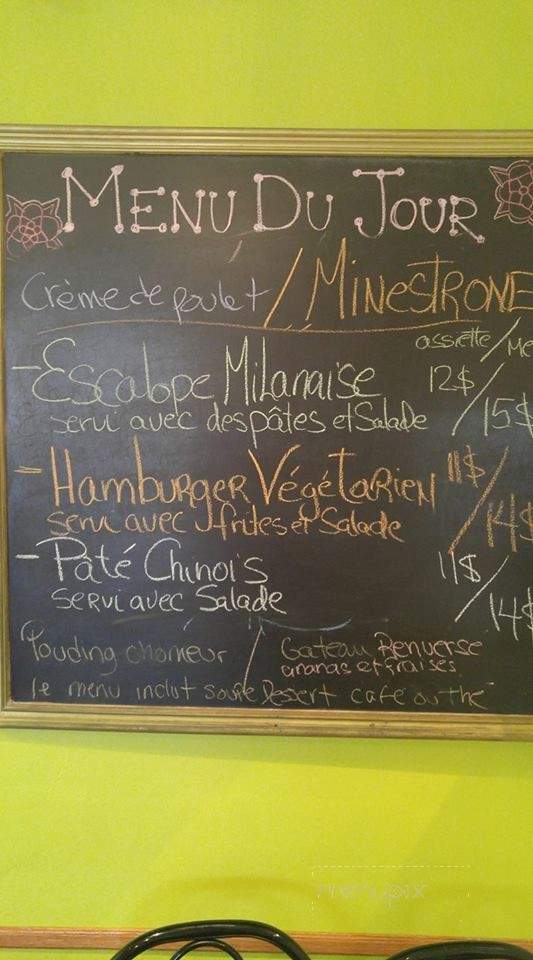 MENU DU JOUR
Crème de poulet / MINESTRONE
assiette / Me
- Escalope Milanaise 12$ / 15$
servi avec des pâtes et Salade
- Hamburger Végétarien 11$ / 14$
servi avec frites et Salade
- Pâté Chinois 11$ / 14$
servi avec Salade
Pouding chomeur / Gateau Renverse
ananas et fraises
le menu inclut soupe Dessert café ou thé